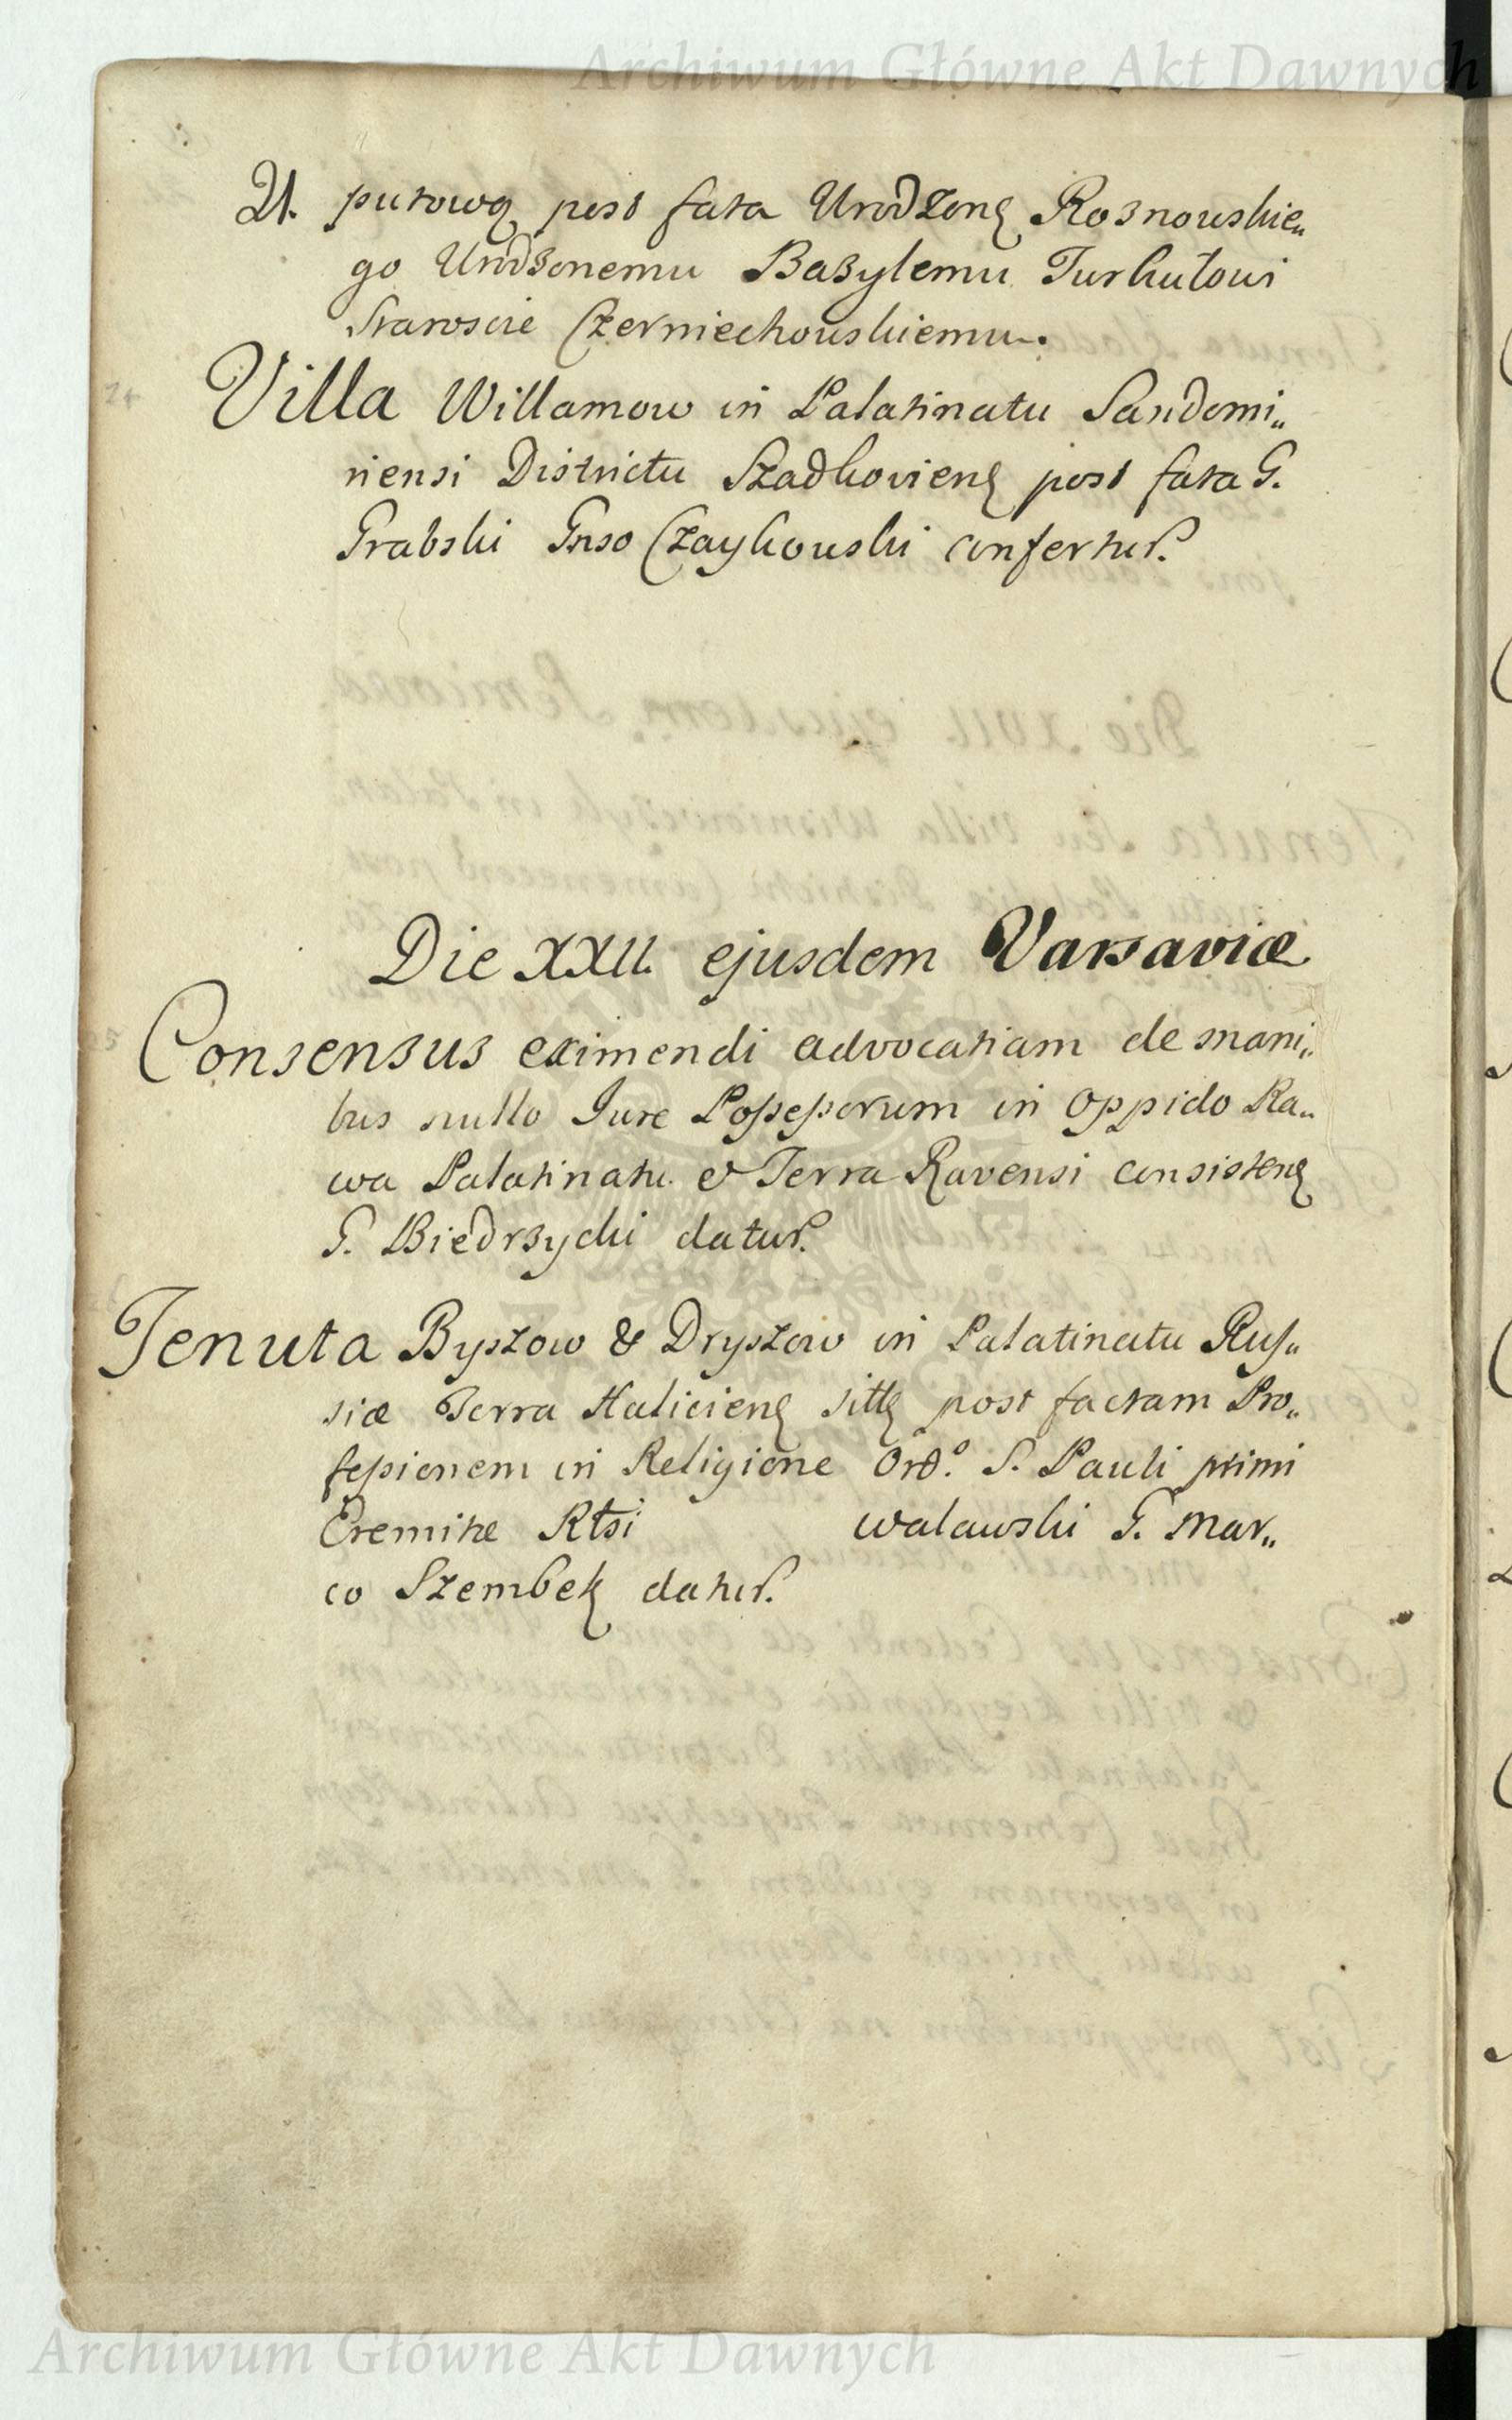 Archiwum Główne Akt Dawnych
21. putową post fata Urodzonę Rosnowskie„
go Urodzonemu Bazylemu Turkułowi
Staroscie Czerniechowskiemu.
24
Villa Willamow in Palatinatu Sandomi„
riensi Districtu Szadkovienę post fata G.
Grabski Gnso Czaykowski confertur.
Die XXII. ejusdem Varsaviæ
Consensus eximendi advocatiam de mani„
bus nullo Jure Possessorum in oppido Ra„
wa Palatinatu & Terra Ravensi consistenę
G. Biedrzycki datur.
Tenuta Byszow & Dryszow in Palatinatu Rus„
siæ Terra Halicienę sittę post factam Pro„
fessionem in Religione Ord.º S. Pauli primi
Eremitæ Rtsi walawski G. Mar„
co Szembek datur.
Archiwum Główne Akt Dawnych